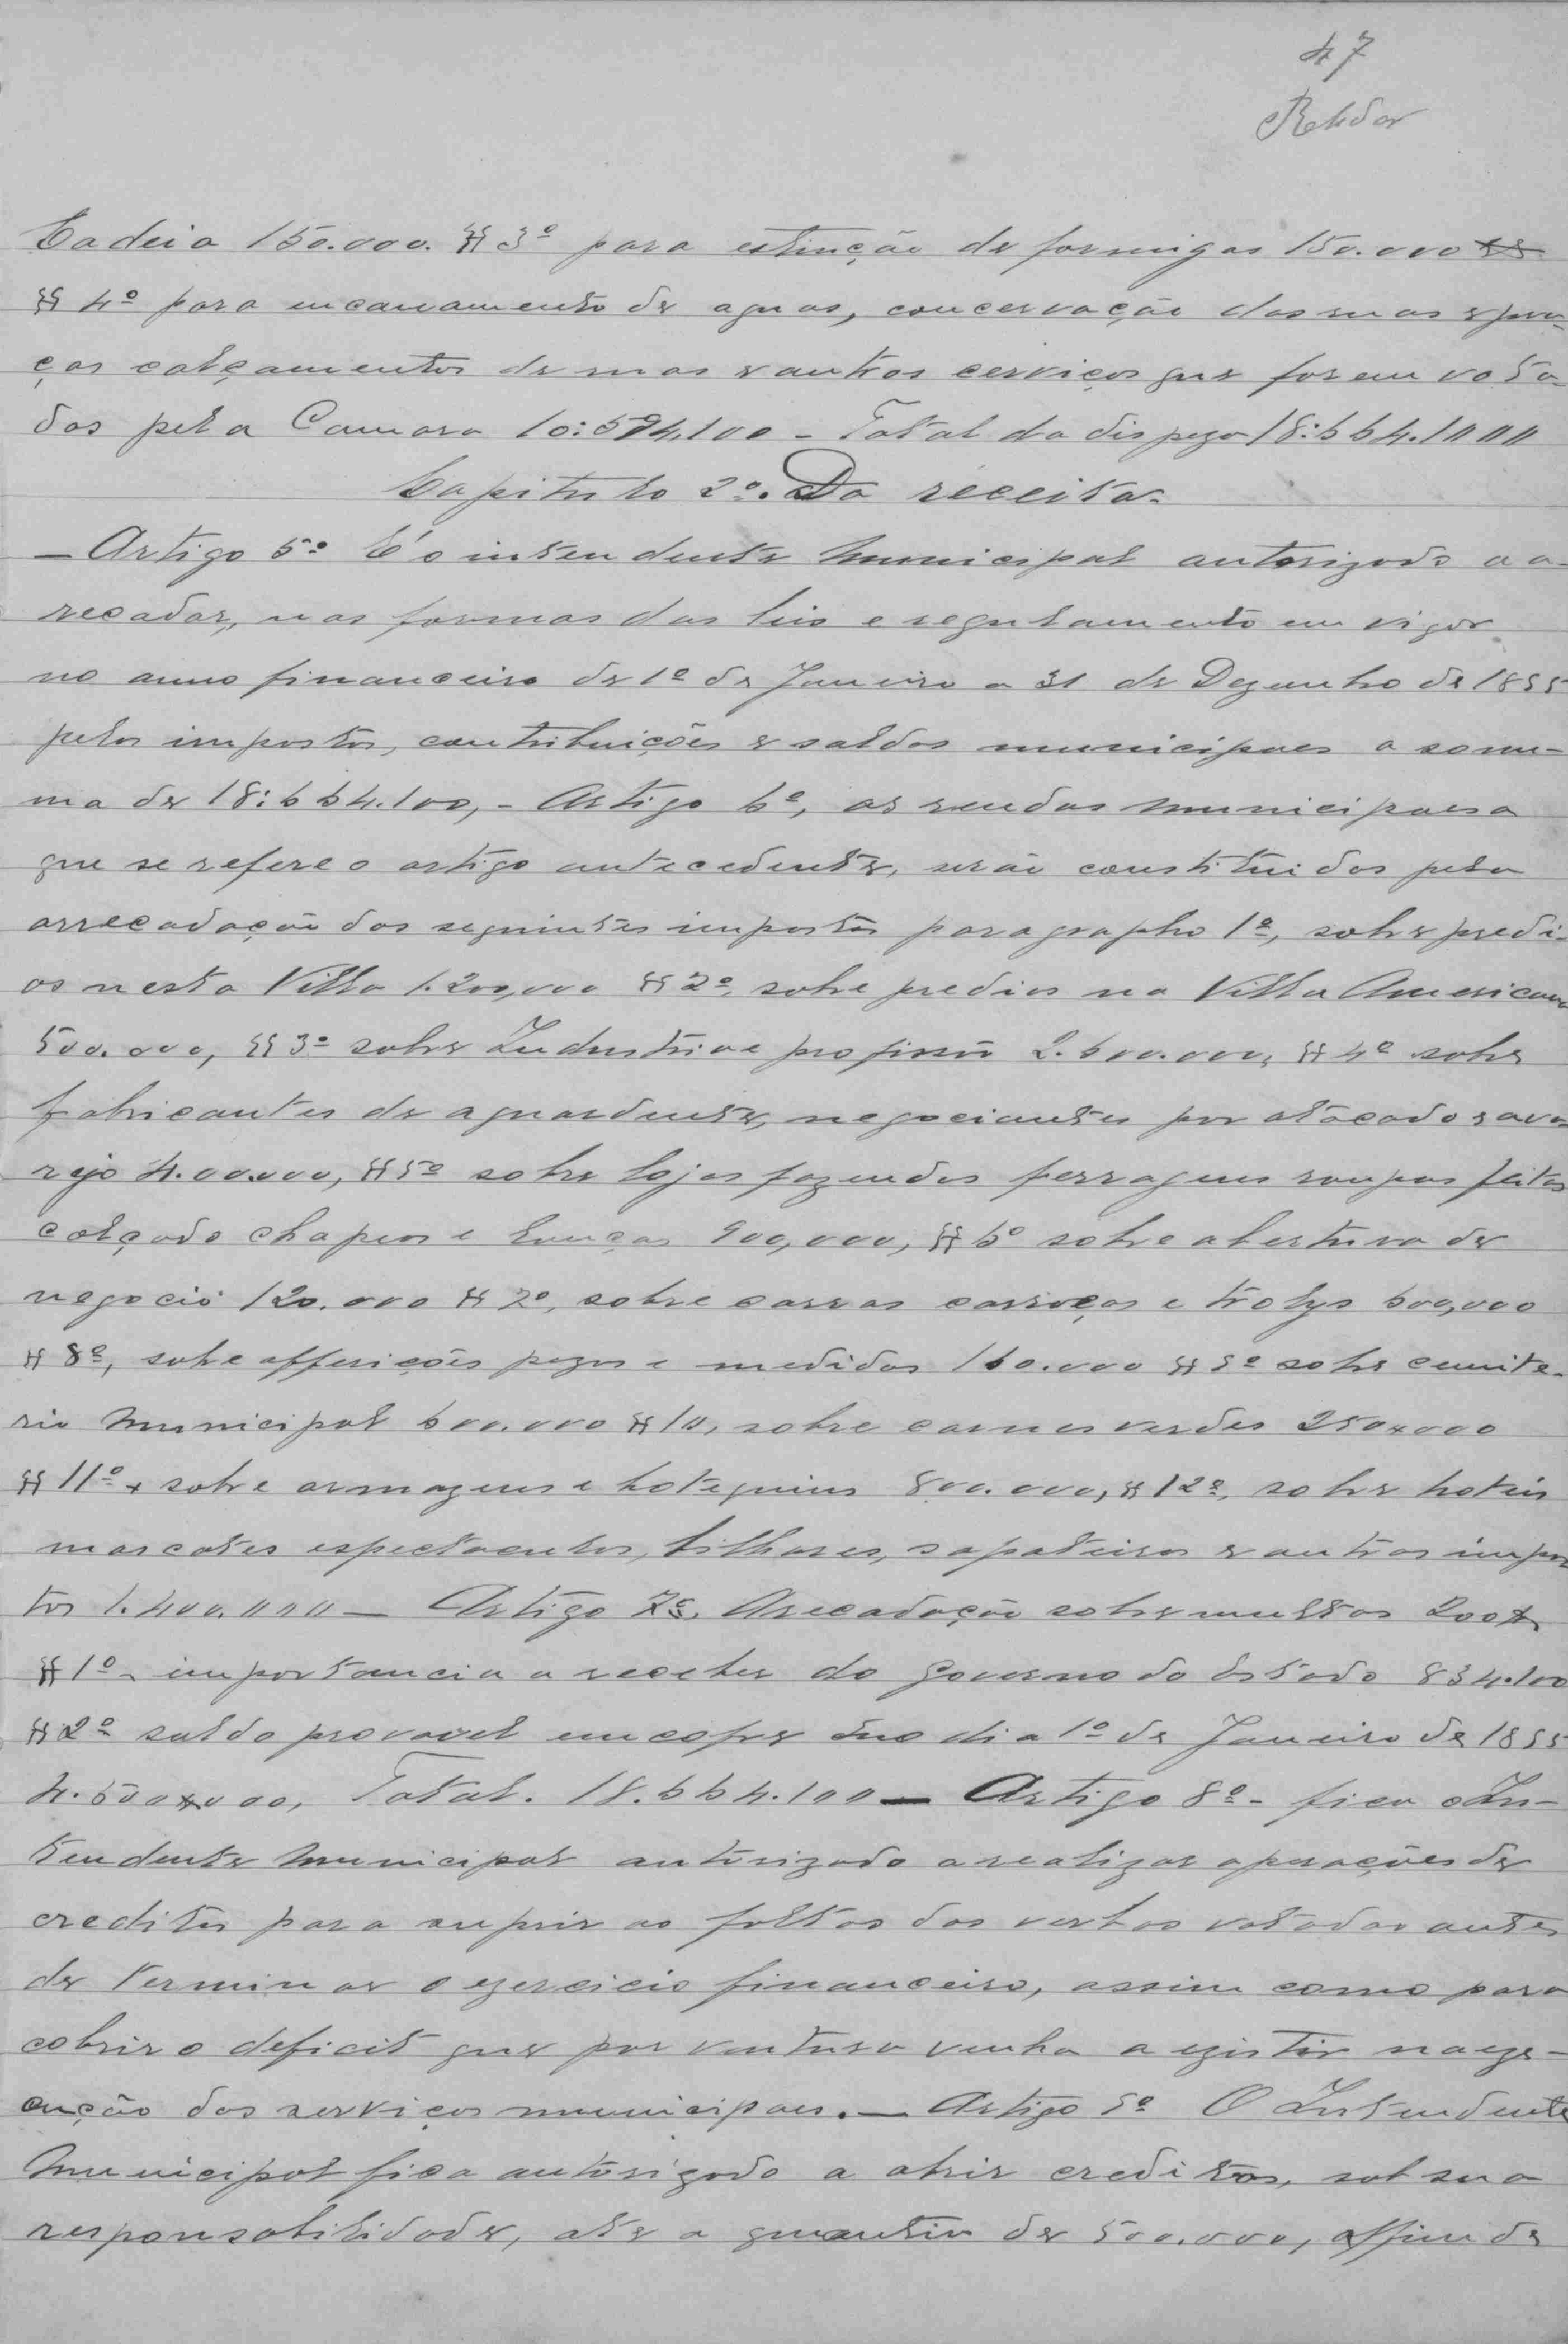 47
Cadeia 150.000. §§ 3º para estinção de formigas 150.000
§§ 4º para encanamento de aguas, concervação das ruas e pra-
ças calçamentos de ruas e outros cerviços que forem vota-
dos pela Camara 10:574.100 - Total da dispeza 18:664.1000
Capitulo 2º. Da receita.
- Artigo 5º É o intendente Municipal autorizado a a-
recadar, nas formas das leis e regulamento em vigor
no anno financeiro de 1º de Janeiro a 31 de Dezembro de 1899
pelos impostos, contribuições e saldos municipaes a som-
ma de 18:664.100, - Artigo 6º, as rendas Municipaes a
que se refere o artigo antecedente, serão constituidas pela
arrecadação dos seguintes impostos paragrapho 1º, sobre predi-
os nesta Villa 1.200,000 §§ 2º, sobre predios na Villa Americana
500.000, §§ 3º sobre Industria e profissão 2.600.000, §§ 4º sobre
fabricantes de aguardente, negociantes por atacado e a va-
rejo 4.00.000, §§ 5º sobre lojas fazendas ferragens roupas feitas
calçado chapeos e louças 900,000, §§ 6º sobre abertura de
negocio 120.000 §§ 7º, sobre carros carroças e trolys 600,000
§§ 8º, sobre afferições pezos e medidas 160.000 §§ 9º sobre cemite-
rio Municipal 600.000 §§ 10, sobre carnes verdes 250x000
§§ 11º, sobre armazens e botequins 800.000, §§ 12º, sobre hoteis
mascates espectaculos, bilhares, sapateiros e outros impos
tos 1.400.000 - Artigo 7º. Arecadação sobre multas 200$
§§ 1º importancia a receber do Governo do Estado 834.100
§§ 2º saldo provavel em cofre no dia 1º de Janeiro de 1899
4.500x000, Total. 18.664.100 - Artigo 8º - fica o In-
tendente Municipal autorizado a realizar operações de
creditos para suprir as faltas das verbas votadas antes
de terminar o ezercicio financeiro, assim como para
cobrir o deficit que por ventura venha a ezistir na eze-
cução dos serviços municipaes. - Artigo 9º O Intendente
Municipal fica autorizado a abrir creditos, sob sua
responsabilidade, até a quantia de 500.000, affim de